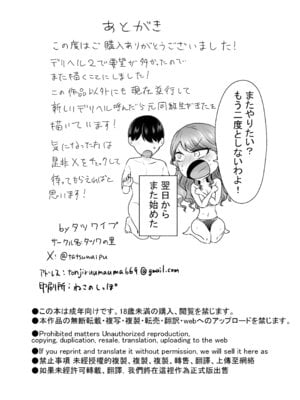 あとがき
この度はご購入ありがとうございました!
デリヘル2で要望が多かったので
また描くことにしました!
この作品以外にも現在並行して
新しいデリヘル呼んだら元同級生がきたを
描いています!
気になった方は
是非Xをチェックして
待ってもらえればと
思います!
byタツワイプ
サークル名:タツワの里
X:@tatsunaipu
アドレス:tonjirumaumau669@gmail.com
印刷所:ねこのしっぽ
またやりたい?
もう二度としないわよ!
翌日から
また始めた
●この本は成年向けです。18歳未満の購入、閲覧を禁じます。
●本作品の無断転載・複写・複製・転売・翻訳・webへのアップロードを禁じます。
●Prohibited matters Unauthorized reproduction,
copying, duplication, resale, translation, uploading to the web
●If you reprint and translate it without permission, we will sell it here as
●禁止事項 未經授權的複製、複製、複製、轉售、翻譯、上傳至網絡
●如果未經許可轉載、翻譯,我們將在這裡作為正式版出售